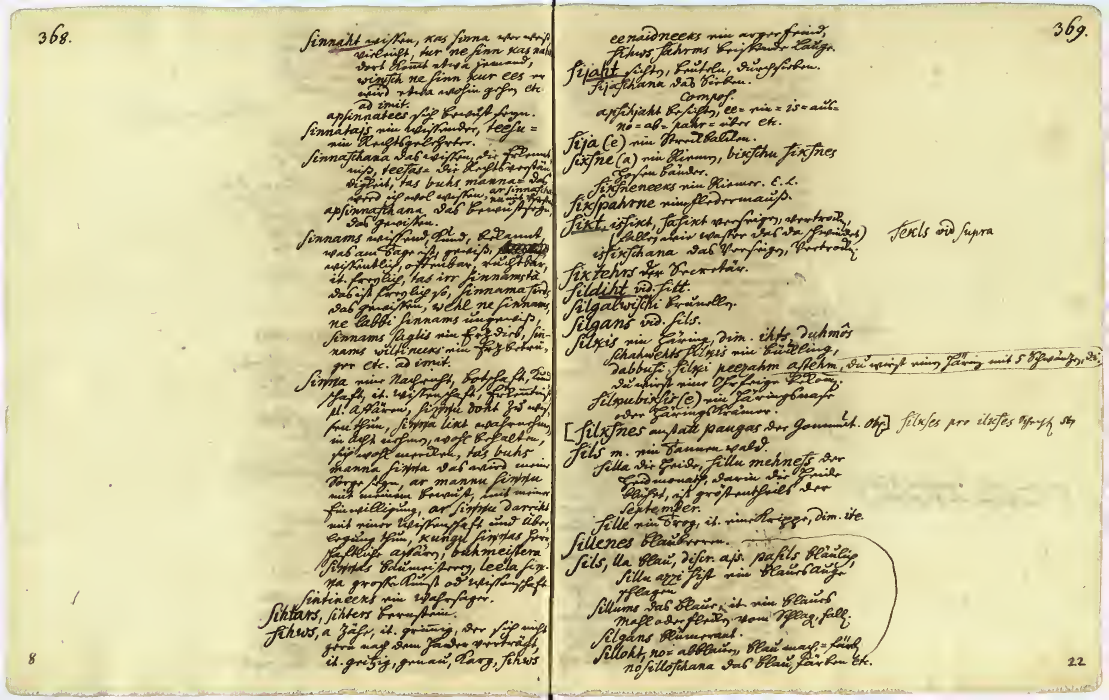 368.
sinnaht wissen, kas sinna wer weiß
vielleicht, tur ne sinn kas nahk
dort kommt etwa jemand,
winsch ne sinn kur ees er
wird etwa wohin gehen etc
ad imit.
apsinnatees sich bewust seyn.
sinnatajs ein wissender, teesu=
ein Rechtsgelehrter.
sinnaschana das wissen, die Erkennt
niß, teesas= die Rechtsverstän
digkeit, tas buhs manna= das
werd ich wol wissen,
apsinnaschana das bewustseyn,
das gewissen.
sinnams wissend, kund, bekannt,
was am Tage ist, gewiß,
wissentlich, offenbar, ruchtbar,
it. freylich, tas irr sinnams tà
das ist freylich so,
das gewissen, wehl ne sinnams,
ne labbi sinnams ungewiß,
sinnams saglis ein Erzdieb, sin=
nams wiltineeks ein Erzbetrü=
ger etc. ad imit.
sinna eine Nachricht, botschaft, kund
schaft, it. wissenschaft, Erkentniß
pl. affären, sinnu doht zu wis
sen thun, sinna likt wahrnehmen
in acht nehmen, wohl behalten,
sich wohl merken, tas buhs
manna sinna das wird meine
Sorge seyn, ar mannu sinnu
mit meinem bewust, mit meiner
Einwilligung, ar sinnu darriht
mit einer Wissenschaft und über
legung thun, kungu sinnas herr
schaftliche affären, buhmeistera
sinnas baumeisterey, leela sin=
na große Kunst od wissenschaft
sintineeks ein Wahrsager.
sihtars, sihters bernstein.
sihws, a zähe, it. grimmig, der sich nicht
gern nach dem andern verträgt,
it. geitzig, genau, karg, sihws
8
369.
eenaidneeks ein arger feind,
sihws sahrms beissende Lauge.
sijaht sichten, beuteln, durchsieben.
sijaschana das Sieben.
compos.
apsijaht besichten, ee= ein= is= aus=
no= ab= pahr= über etc.
sija (e) ein Streckbalken.
siksne (a) ein Riemen, bikschu siksnes
Hosen bänder.
siksneneeks ein Riemer. E. L.
sikspahrne ein fledermauß.
sikt, issikt, sasikt versiegen, vertrocknen,
(fallen wie ein wasser das da schwindet)
issikschana das Versiegen, Vertrocknen
sekls vid supra
siktehrs der Secretär.
sildiht vid. silt.
silgalwischi brunellen.
silgans vid. sils.
silkis ein Häring, dim. ihts, duhmôs
schahwehts silkis ein bückling,
dabbusi, silki peezahm astehm, du wirst einen Häring mit 5 Schwänzen, di
du wirst eine Ohrfeige bekom̄en
silkubiksis (e) ein Häringsnase
oder Häringskrämer.
[silksnes anstatt paugas der Gommut. Ohs] silkses pro ilkses
sils m. ein Tannen wald.
silla die Heide, sillu mehness der
Herbmonath, darin die Heide
blühet, ist gröstentheils der
September.
sille ein Trog, it. eine Krippe, dim. ite.
sillenes blaubeeren.
sils, lla blau, discr. ajs. pasils bläulich,
sillu azzi sist ein blaues Auge
schlagen
sillums das blaue, it. ein blaues
Mahl oder flecken vom Schlag, fall.
silgans blümerant.
silloht, no= abblauen, blau machen=färben
nosilloschana das blau färben etc.
22